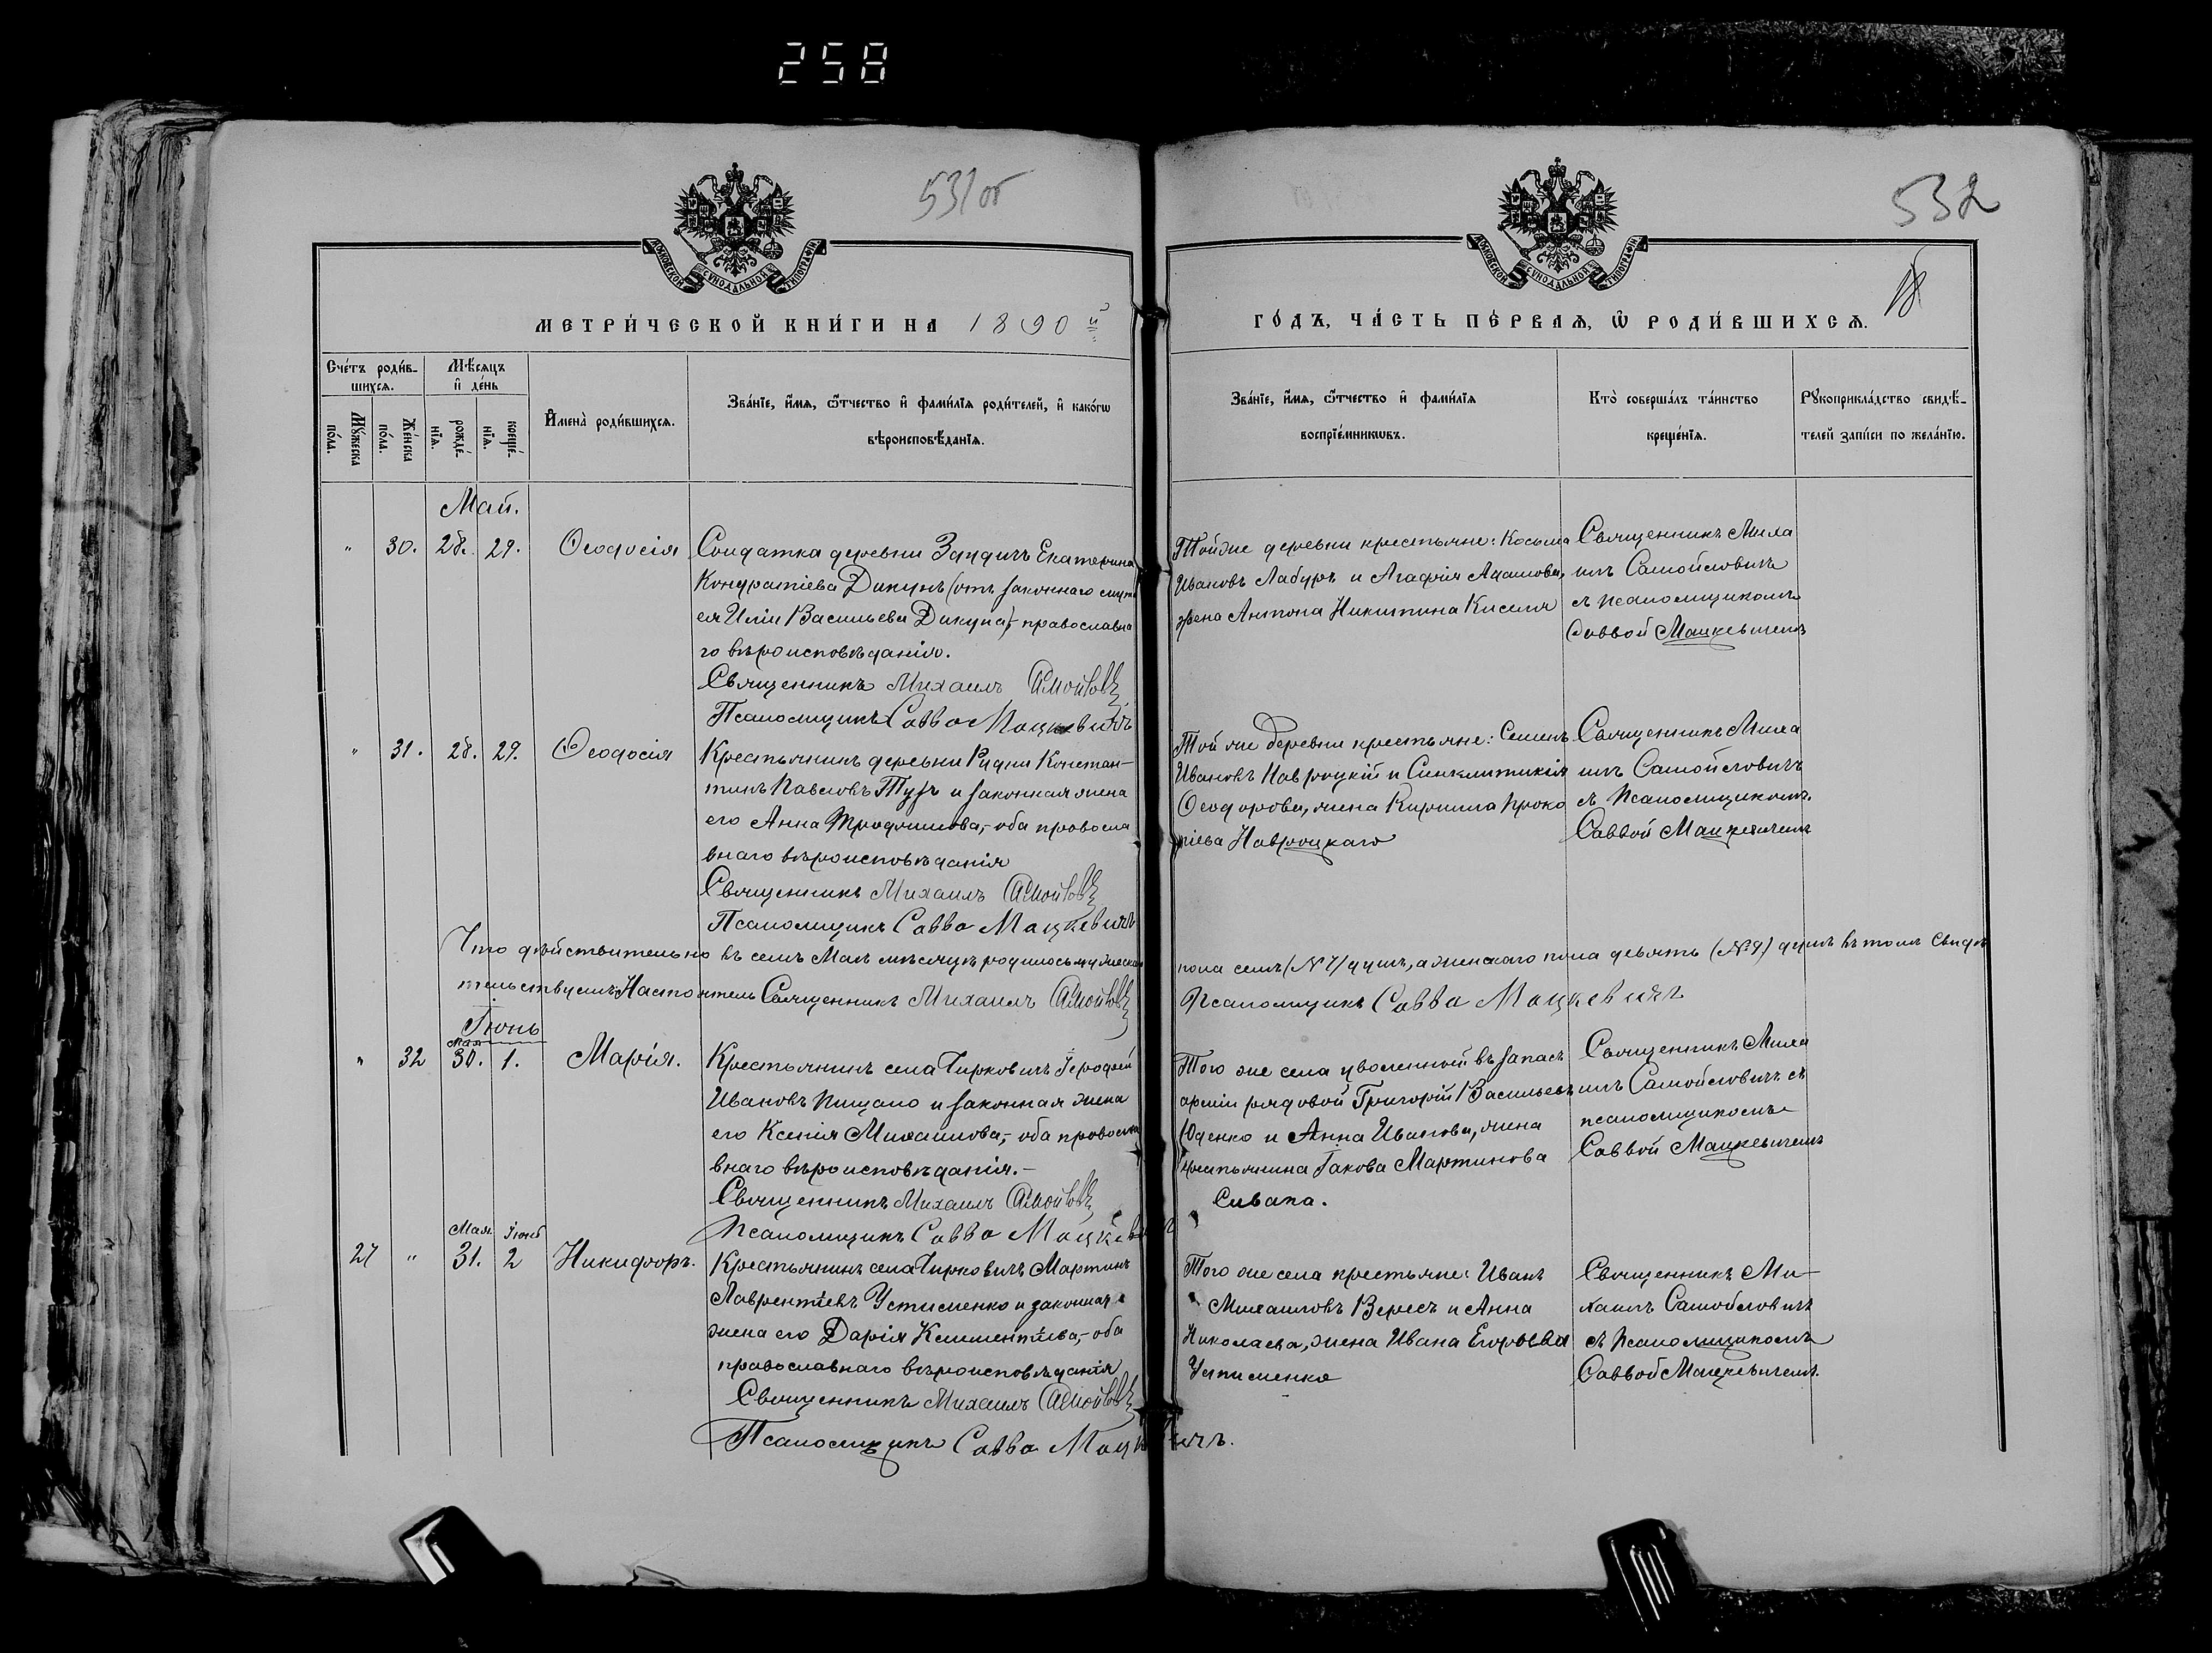 258
531об
532
18
МОСКОВСКОЙ СѴНОДАЛЬНОЙ ТИПОГРАФІИ
МОСКОВСКОЙ СѴНОДАЛЬНОЙ ТИПОГРАФІИ
МЕТРИ́ЧЕСКОЙ КНИ́ГИ НА 1890й
ГО́ДЪ, ЧА́СТЬ ПЕ́РВАѦ, Ѡ҆ РОДИ́ВШИХСѦ.
Сче́тъ роди́в-
шихсѧ.
Мꙋ́жеска по́ла.
Же́нска по́ла.
Мѣ́сѧцъ
и҆ де́нь
рожде́-
нїѧ.
креще́-
нїѧ.
И҆мена̀ роди́вшихсѧ.
Зва́нїе, и҆́мѧ, ѻ҆́тчество и҆ фами́лїѧ роди́телей, и҆ како́гѡ
вѣроисповѣ́данїѧ.
Зва́нїе, и҆́мѧ, ѻ҆́тчество и҆ фами́лїѧ
воспрїе́мникѡвъ.
Кто̀ соверша́лъ та́инство
креще́нїѧ.
Рꙋкоприкла́дство свидѣ́-
телей за́писи по жела́нїю.
Май.
" 30. 28. 29. Ѳеодосія
Солдатка деревни Заудичъ Екатерина
Кондратіева Дикунъ (отъ законнаго мужа
ея Иліи Васильева Дикуна), православна
го вѣроисповѣданія.
Священникъ Михаилъ Самойловичъ
Псаломщикъ Савва Мацкевичъ
Той же деревни крестьяне: Косьма
Ивановъ Лабуръ и Агафія Адамова,
жена Антона Никитина Киселя
Священникъ Миха
илъ Самойловичъ
съ псаломщикомъ
Саввой Мацкевичемъ
" 31. 28. 29. Ѳеодосія
Крестьянинъ деревни Рудни Констан-
тинъ Павловъ Тузъ и законная жена
его Анна Трофимова,- оба правосла
внаго вѣроисповѣданія
Священникъ Михаилъ Самойловичъ
Псаломщикъ Савва Мацкевичъ
Той же деревни крестьяне: Семенъ
Ивановъ Навроцкій и Синклитикія
Ѳеодорова, жена Кирилла Проко
піева Навроцкаго
Священникъ Миха
илъ Самойловичъ
съ псаломщикомъ
Саввой Мацкевичемъ
Что дѣйствительно въ семъ Маѣ мѣсяцѣ родилось мужескаго
пола семь (№ 7) душъ, а женскаго пола девять (№ 9) душъ въ томъ свидѣ
тельствуемъ: Настоятель Священникъ Михаилъ Самойловичъ
Псаломщикъ Савва Мацкевичъ
Іюнь
Мая
" 32 30. 1. Марія.
Крестьянинъ села Чирковичъ Іерофей
Ивановъ Пищало и законная жена
его Ксенія Михайлова,- оба правосла
внаго вѣроисповѣданія.-
Священникъ Михаилъ Самойловичъ
Псаломщикъ Савва Мацкевичъ
Того же села уволенный въ запасъ
арміи рядовой Григорій Васильевъ
Юденко и Анна Иванова, жена
крестьянина Іакова Мартинова
Сивака.
Священникъ Миха
илъ Самойловичъ съ
псаломщикомъ
Саввой Мацкевичемъ
Мая Іюня
27 " 31. 2 Никифоръ.
Крестьянинъ села Чирковичъ Мартинъ
Лаврентіевъ Устименко и законная
жена его Дарія Климентіева,- оба
православнаго вѣроисповѣданія
Священникъ Михаилъ Самойловичъ
Псаломщикъ Савва Мацкевичъ.
Того же села крестьяне: Иванъ
Михаиловъ Вересъ и Анна
Николаева, жена Ивана Егорьева
Устименка
Священникъ Ми-
хаилъ Самойловичъ
съ псаломщикомъ
Саввой Мацкевичемъ.